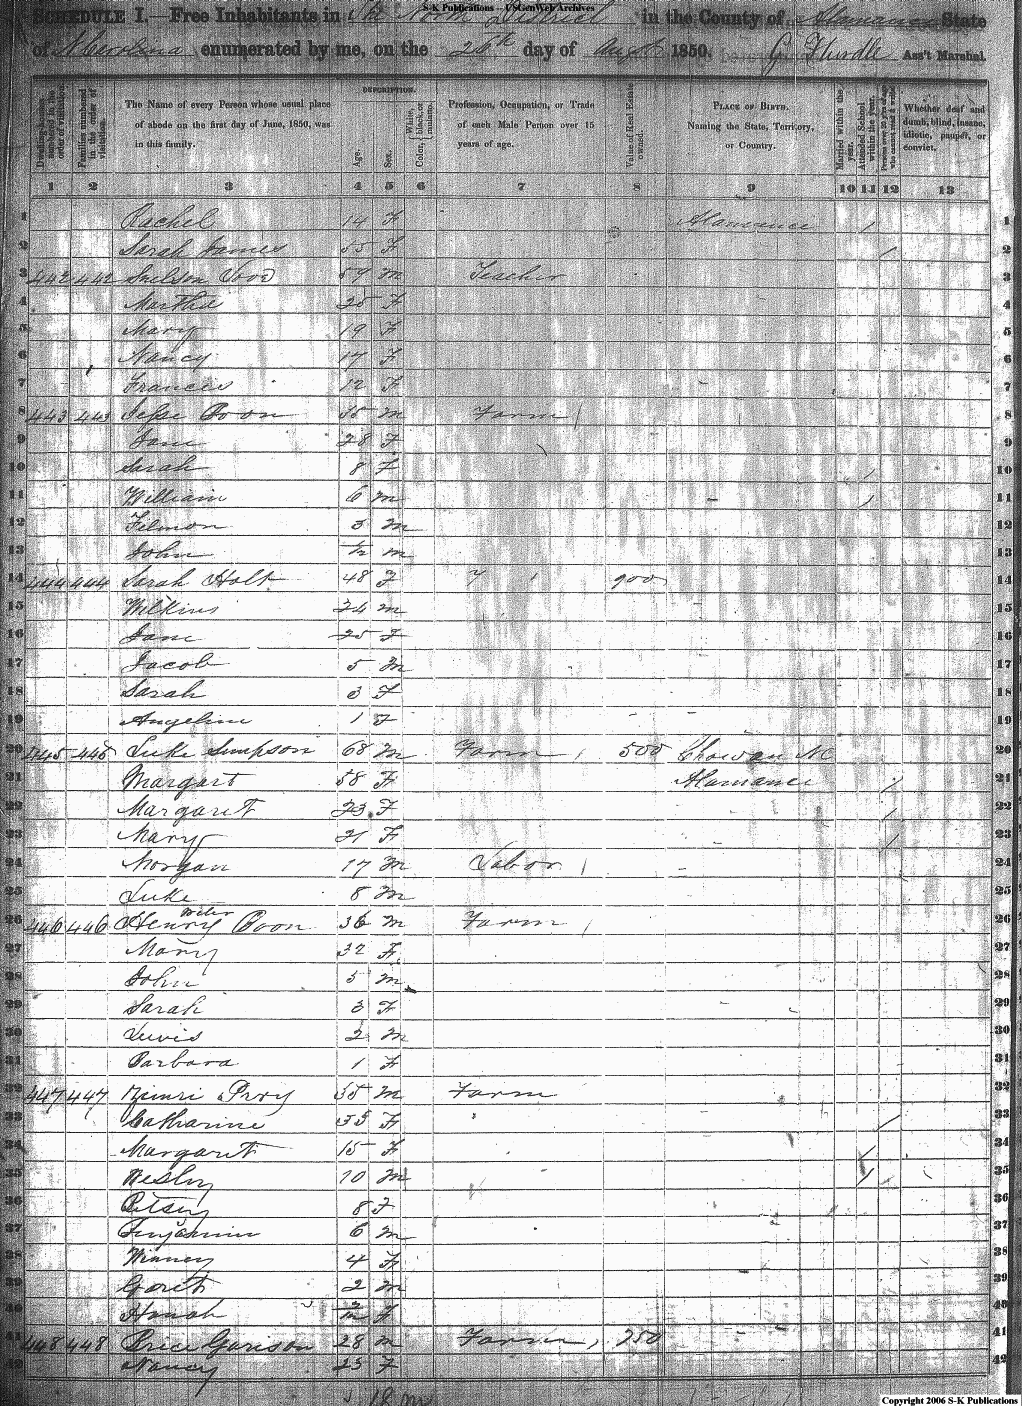 S-K Publications -- USGenWeb Archives
SCHEDULE I.—Free Inhabitants in The North District in the County of Alamance State
of N Carolina enumerated by me, on the 26th day of Augt 1850. G Hurdle Ass't Marshal.
DESCRIPTION.
Dwelling-houses numbered in the order of visitation.
Families numbered in the order of visitation.
The Name of every Person whose usual place of abode on the first day of June, 1850, was in this family.
Age.
Sex.
White, black, or mulatto.
Color,
Profession, Occupation, or Trade of each Male Person over 15 years of age.
Value of Real Estate owned.
PLACE OF BIRTH. Naming the State, Territory, or Country.
Married within the year.
Attended School within the year.
Persons over 20 y'rs of age who cannot read & write.
Whether deaf and dumb, blind, insane, idiotic, pauper, or convict.
1 2 3 4 5 6 7 8 9 10 11 12 13
1 Rachel 14 F Alamance / 1
2 Sarah James 55 F / 2
3 442 442 59 M Teacher 3
4 Martha 25 F 4
5 Mary 19 F 5
6 Nancy 17 F 6
7 Frances 12 F 7
8 443 443 Jesse Boon 35 M Farm 8
9 Jane 28 F 9
10 Sarah 8 F / 10
11 William 6 M / 11
12 3 M 12
13 John M 13
14 444 444 Sarah Holt 48 F 900 14
15 Wilkins 24 M 15
16 Jane 25 F 16
17 Jacob 5 M 17
18 Sarah 3 F 18
19 Angeline 1 F 19
20 445 445 Luke Simpson 68 M Farm 500 Chowan NC 20
21 Margart 58 F Alamance / 21
22 Margaret 23 F / 22
23 Mary 21 F / 23
24 Morgan 17 M Labor 24
25 Luke 8 M 25
26 446 446 Henry Boon 36 M Farm 26
27 Mary 32 F 27
28 John 5 M 28
29 Sarah 3 F 29
30 Lewis 2 M 30
31 Barbara 1 F 31
32 447 447 35 M Farm 32
33 Catharine 35 F / 33
34 Margaret 15 F / 34
35 Wesley 10 M / 35
36 Betsey 8 F 36
37 Benjamin 6 M 37
38 4 F 38
39 2 M 39
40 F 40
41 448 448 Garison 28 M Farm 250 41
42 Nancy 25 F 42
18 m
Copyright 2006 S-K Publications